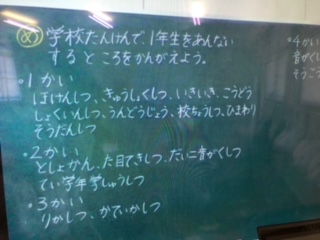 め 学校たんけんで、1年生をあんない
するところをかんがえよう。
・1かい
ほけんしつ、きゅうしょくしつ、いきいき、こうどう
しょくいんしつ、うんどうじょう、校ちょうしつ、ひまわり
そうだんしつ
・2かい
としょかん、た目てきしつ、だい二音がくしつ
てい学年学しゅうしつ
・3かい
りかしつ、かていかしつ
・4かい
音がく
そうご